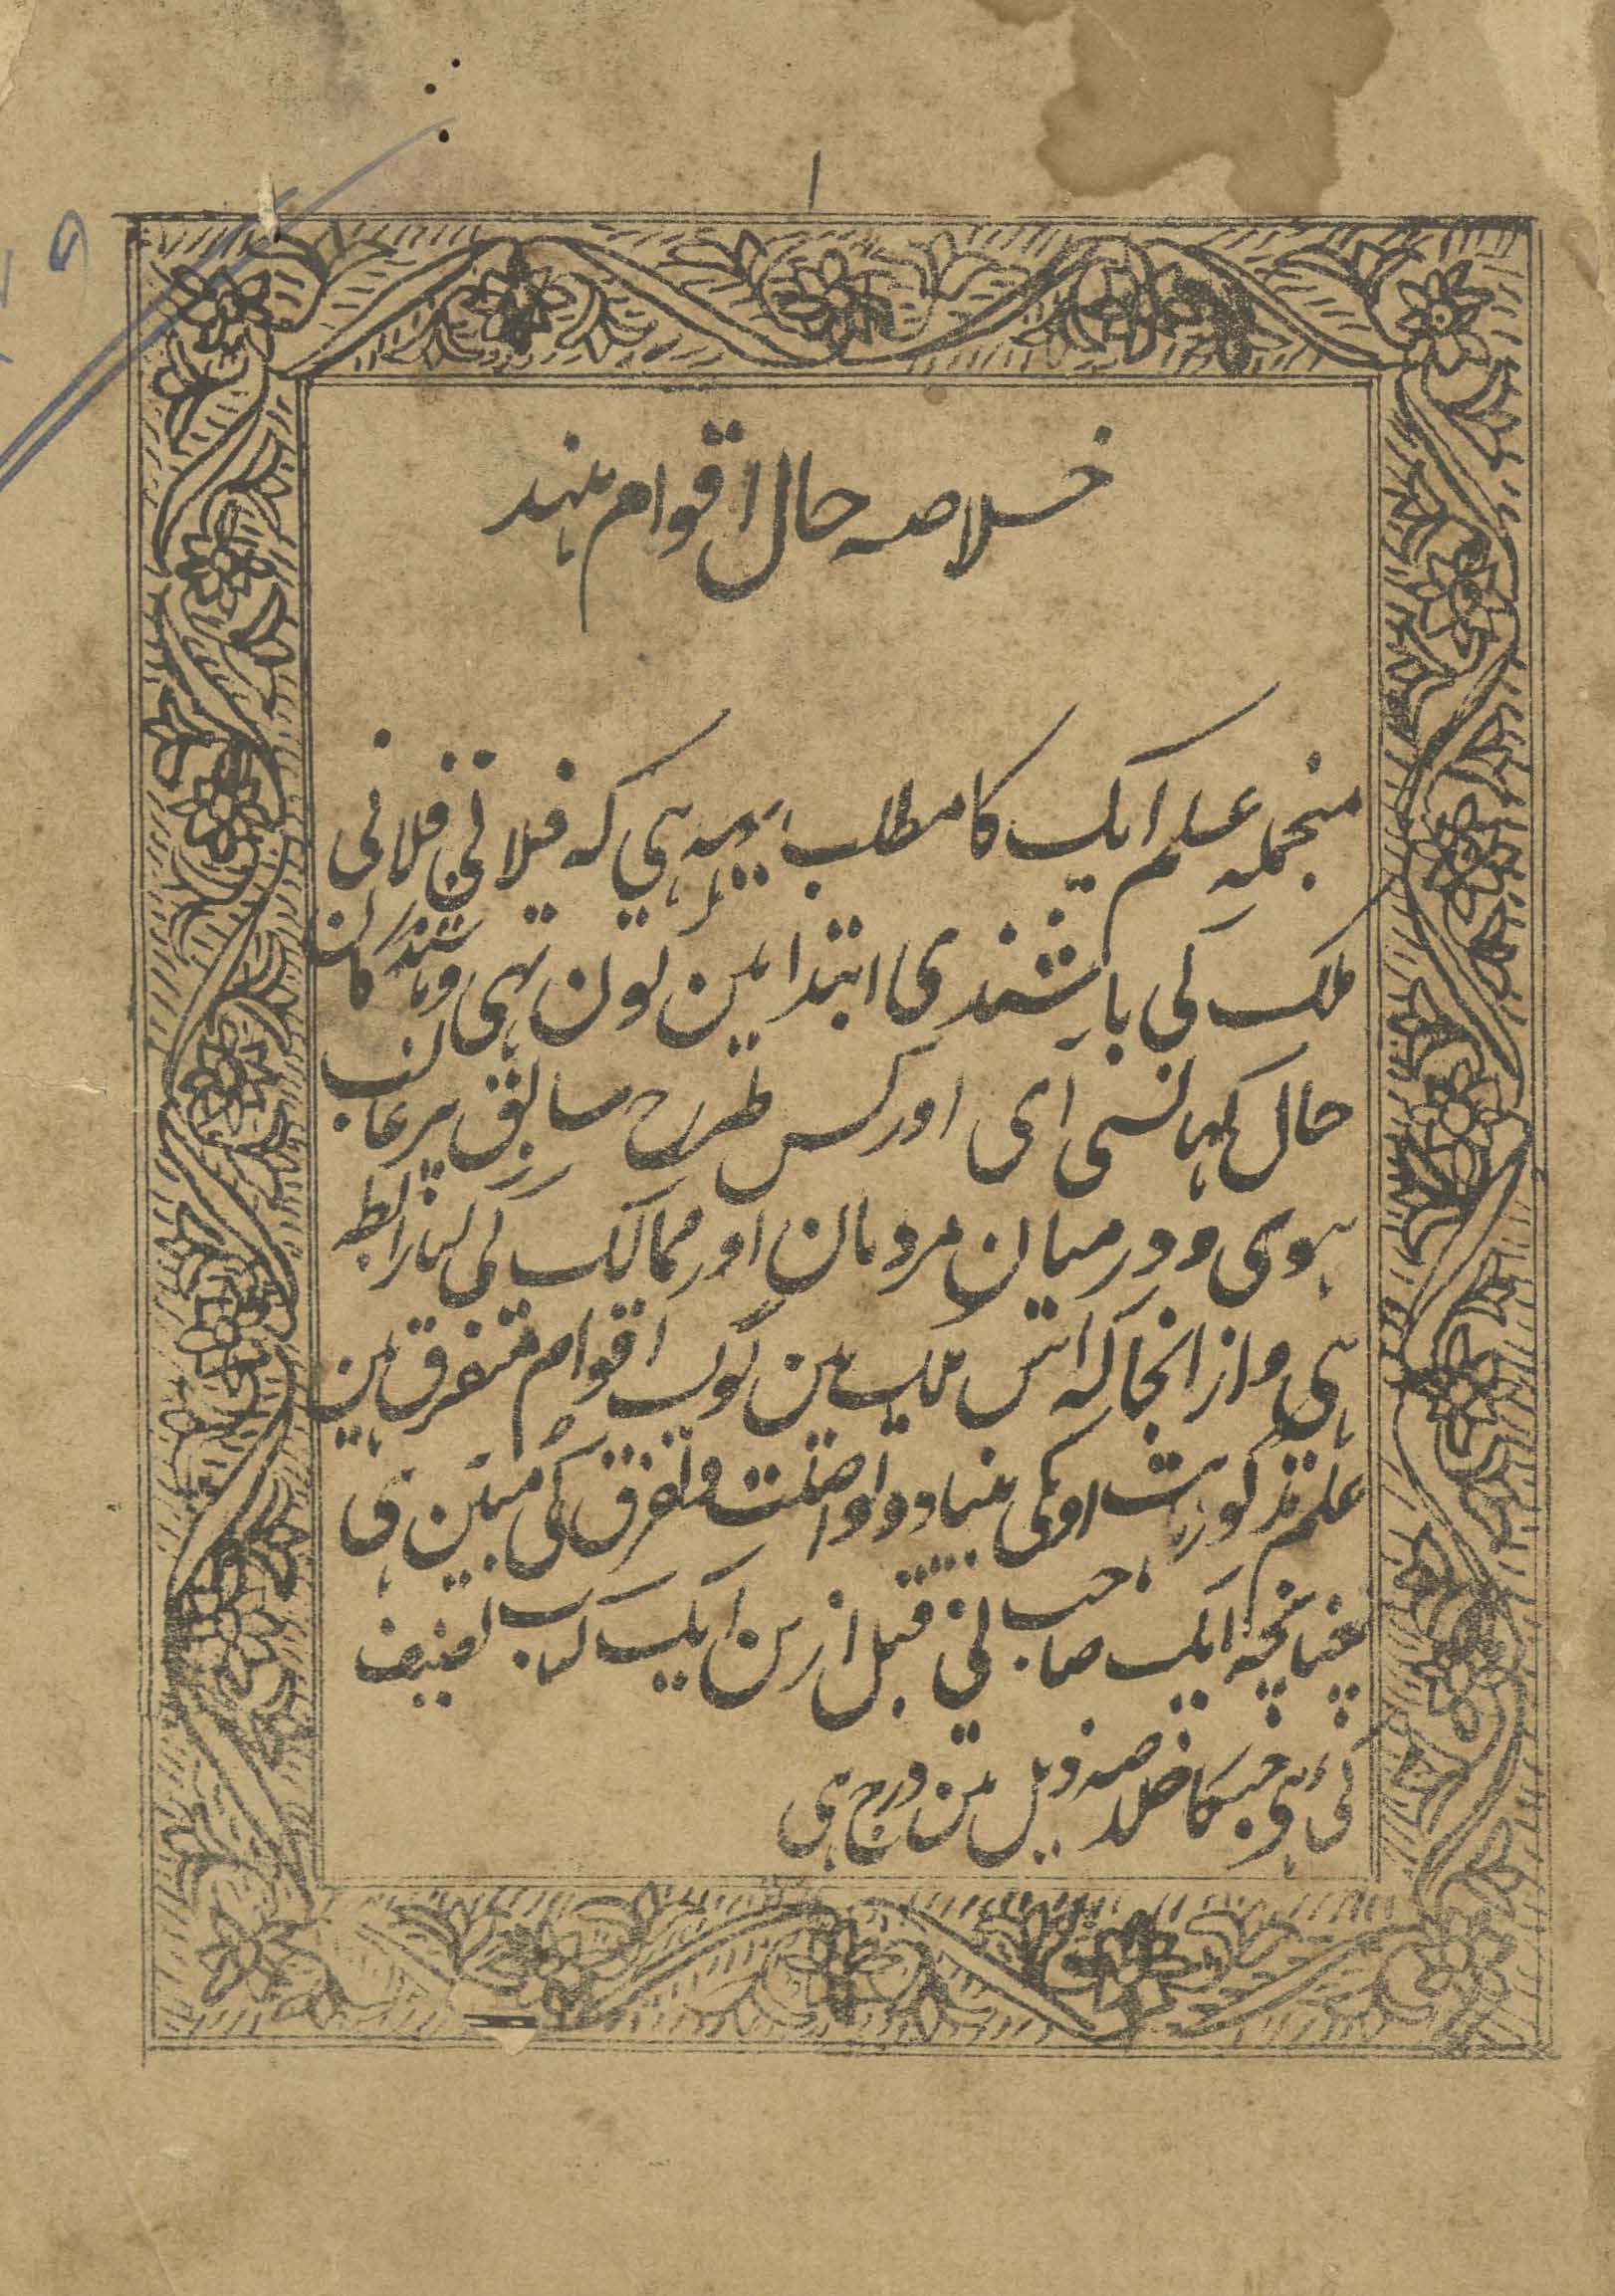 ۱
خلاصہ حال اقوام ہند
منجملہ علم ایک کا مطلب یہہ ہی کہ فلانی فلانی
ملک کی باشندی ابتدا مین کون تہی و باشندگان
حال کہانسی آی اور کس طرح سابق پر غالب
ہوی و درمیان مردمان اور ممالک کی کیا رابطہ
ہی و از انجا کہ اس ملک مین لوگ اقوام متفرق ہین
علم مذکور اونکی بنیاد و و تفرق کی مبین ہی
چنانچہ ایک صاحب نی قبل ازین ایک کتاب تصنیف
کی ہی جسکا خلاصہ ذیل مین درج ہی